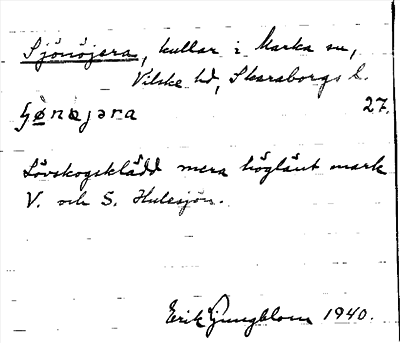 Sjönöjera, kullar i Marka sn,
Vilske hd, Skaraborgs l.
27.
Lövskogsklädd mera höglänt mark
V. och S. Hulesjön.
Erik Ljungblom 1940.